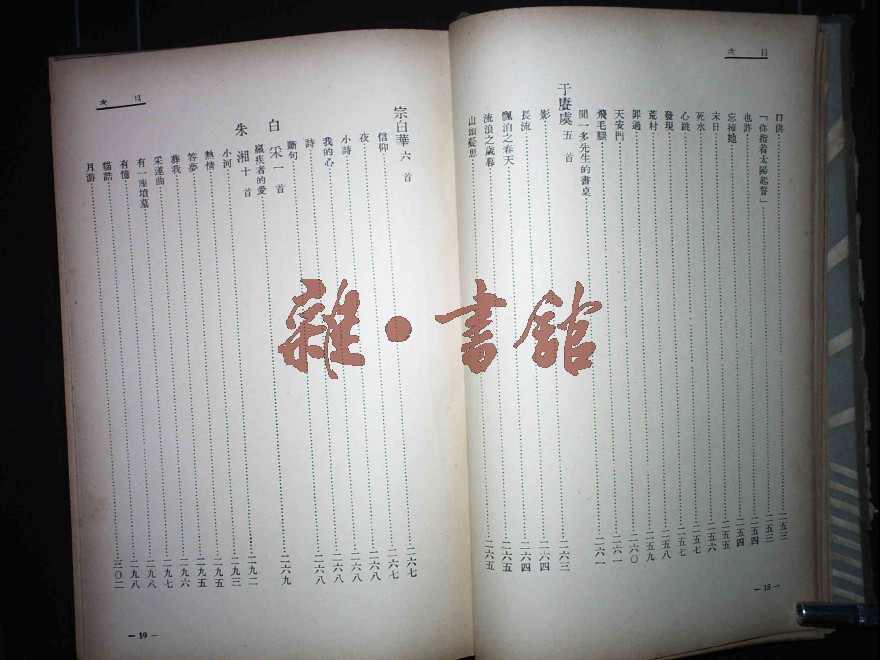 目次
口供……二五三
「你指着太陽起誓」……二五三
也許……二五四
忘掉她……二五四
末日……二五五
死水……二五六
心跳……二五七
發現……二五七
荒村……二五八
罪過……二五九
天安門……二六〇
飛毛腿……二六一
聞一多先生的書桌……二六一
于賡虞五首
影……二六三
長流……二六四
飄泊之春天……二六四
流浪之歲暮……二六五
山頭凝思……二六五
— 18 —
目次
宗白華六首
信仰……二六七
夜……二六七
小詩……二六八
我的心……二六八
詩……二六八
斷句……二六八
白采一首
羸疾者的愛……二六九
朱湘十首
小河……二九二
熱情……二九三
答夢……二九五
葬我……二九五
采蓮曲……二九六
有一座墳墓……二九七
有憶……二九八
貓誥……二九八
月游……三〇二
— 19 —
雜·書館